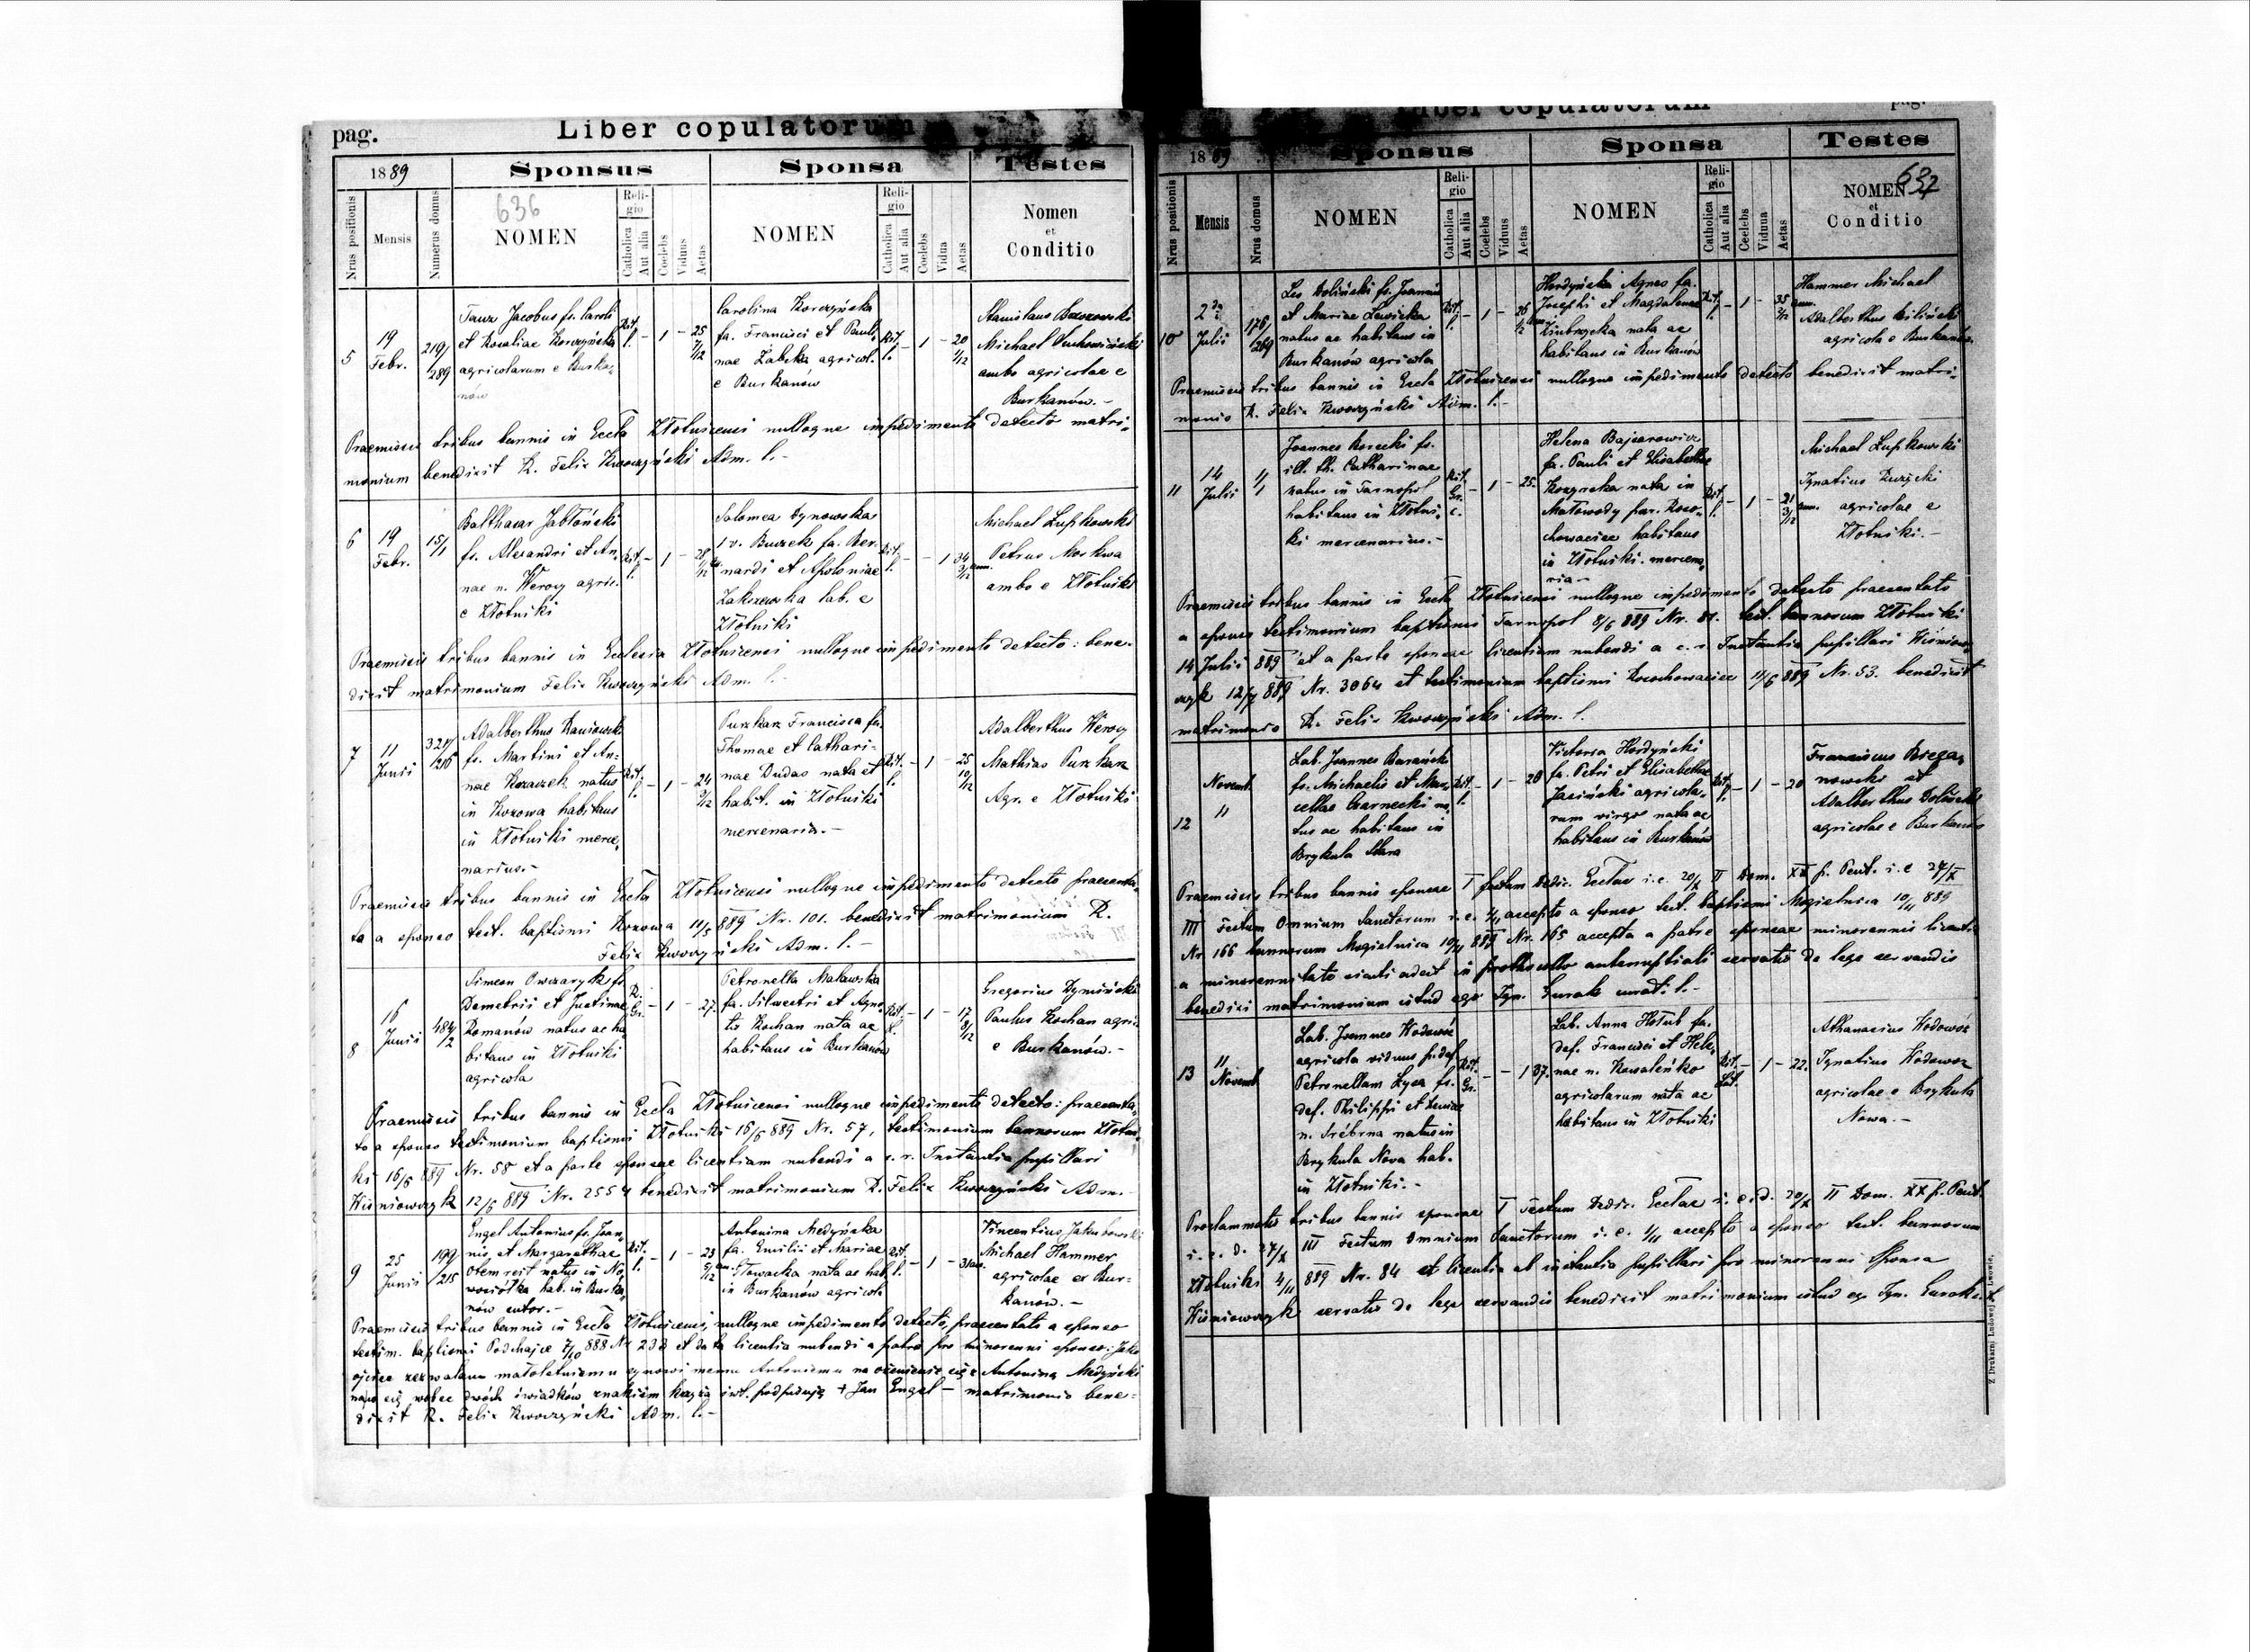 pag.
Liber copulatorum
1889
Sponsus
Sponsa
Testes
Nrus positionis
Mensis
Numerus domus
636
NOMEN
Reli-
gio
Catholica
Aut alia
Coelebs
Viduus
Aetas
NOMEN
Reli-
gio
Catholica
Aut alia
Coelebs
Vidua
Aetas
Nomen
et
Conditio
5
19
Febr.
219/
289
Jacobus fs. Caroli
et Rosaliae Korczyńska
agricolarum e Burka-
nów
Rit.
l.
- 1 - 25
7/12
Carolina Korczyńska
fa. Francisci et Pauli-
nae Żabska agricol.
e Burkanów
Rit.
l.
- 1 - 20
1/12
Stanislaus
Michael
ambo agricolae e
Burkanów.-
Praemissis tribus bannis in Eccla Złotnicensi nulloque impedimento detecto matri-
monium benedixit R. Felix Kworzyński Adm. l.-
6
19
Febr.
15/1
Balthasar Jabłoński
fs. Alexandri et An-
nae n. Werocy agric.
e Złotniki
Rit.
l.
- 1 - 28
Salomea Dynowska
1 v. Buczek fa. Ber-
nardi et Apoloniae
Zakrzewska lab. e
Złotniki
Rit.
l.
- - 1 34
3/12
Michael Łupkowski
Petrus Moskwa
ambo e Złotniki
Praemissis tribus bannis in Ecclesia Złotnicensi nulloque impedimento detecto: bene-
dixit matrimonium Felix Kworzyński Adm. l.-
7
11
Junii
321/
216
Adalberthus
fs. Martini et An-
nae Kozaczek natus
in Kozowa habitans
in Złotniki merce-
narius.-
Rit.
l.
- 1 - 24
9/12
Puzkar Francisca fa.
Thomae et Cathari-
nae Dudas nata et
habit. in Złotniki
mercenaria.-
Rit.
l.
- 1 - 25
10/12
Adalberthus Werocy
Mathias Puzkar
Agr. e Złotniki
Praemissis tribus bannis in Eccla Złotnicensi nulloque impedimento detecto praesenta-
to a sponso test. baptismi Kozowa 11/5 889 Nr. 101. benedixit matrimonium R.
Felix Kworzyński Adm. l.-
8
16
Junii
484/
2
Simeon Owczaryk fs.
Demetrii et Justinae
Romanów natus ac ha-
bitans in Złotniki
agricola
R.
Gr.
- 1 - 27.
Petronella Malawska
fa. Silvestri et Agne-
tis Kochan nata ac
habitans in Burkanów
Rit.
l.
- 1 - 17
8/12
Gregorius Dymiński
Paulus Kochan agric.
e Burkanów.-
Praemissis tribus bannis in Eccla Złotnicensi nulloque impedimento detecto: praesenta-
to a sponso testimonium baptismi Złotniki 16/6 889 Nr. 57, testimonium bannorum Złotni-
ki 16/6 889 Nr. 58 et a parte sponsae licentiam nubendi a c. r. Instantia pupillari
Wiśniowczyk 12/6 889 Nr. 2554 benedixit matrimonium R. Felix Kworzyński Adm.-
9
25
Junii
199/
215
Engel Antonius fs. Joan-
nis et Margarethae
natus in No-
wosiółka hab. in Burka-
nów sutor.-
Rit.
l.
- 1 - 23
5/12
Antonina Medyńska
fa. Emilii et Mariae
Głowacka nata ac hab.
in Burkanów agricola
Rit.
l.
- 1 - 31 an.
Vincentius Jakubowski
Michael Hammer
agricolae ex Bur-
kanów.-
Praemissis tribus bannis in Eccla Złotnicensi, nulloque impedimento detecto, praesentato a sponso
testim. baptismi Podhajce 7/10 888 Nr. 238 et data licentia nubendi a patre pro minorenni sponso: Jako
ojciec zezwalam małoletniemu synowi memu Antoniemu na ożenienie się z Antoniną Medyński
na co się wobec dwóch świadków znakiem krzyża św. podpisuję + Jan Engel - matrimonio bene-
dixit R. Felix Kworzyński Adm. l.-
Liber copulatorum
pag.
1889
Sponsus
Sponsa
Testes
Nrus positionis
Mensis
Nrus domus
NOMEN
Reli-
gio
Catholica
Aut alia
Coelebs
Viduus
Aetas
NOMEN
Reli-
gio
Catholica
Aut alia
Coelebs
Vidua
Aetas
637
NOMEN
et
Conditio
10
2
Julii
176/
269
Leo Doliński fs. Joannis
et Mariae Lewicka
natus ac habitans in
Burkanów agricola
Rit.
l.
- 1 - 26
1/2
Hordyńska Agnes fa.
Josephi et Magdalenae
nata ac
habitans in Burkanów
Rit.
l.
- 1 - 35
3/12
Hammer Michael
Adalberthus Biliński
agricola e Burkanów.
Praemissis tribus bannis in Eccla Złotnicensi nulloque impedimento detecto benedixit matri-
monio R. Felix Kworzyński Adm. l.-
11
14
Julii
1/1
Joannes Korecki fs.
ill. th. Catharinae
natus in Tarnopol
habitans in Złotni-
ki mercenarius.-
Rit.
Gr.
c.
- 1 - 25.
Helena Bajzarowicz
fa. Pauli et Elisabethae
Kozyreka nata in
Małowody par. Roso-
chowaciec habitans
in Złotniki. mercena-
ria.-
Rit.
l.
- 1 - 21
3/12
Michael Łupkowski
Ignatius
agricolae e
Złotniki.-
Praemissis tribus bannis in Eccla Złotnicensi nulloque impedimento detecto praesentato
a sponso testimonium baptismi Tarnopol 8/6 889 Nr. 81. test. bannorum Złotniki
14 Julii 889 et a parte sponsae licentiam nubendi a c. r. Instantia pupillari Wiśniow-
czyk 12/7 889 Nr. 3064 et testimonium baptismi Rosochowaciec 11/6 889 Nr. 53. benedixit
matrimonio R. Felix Kworzyński Adm. l.
12
Novemb.
11
Lab. Joannes Barański
fs. Michaelis et Mar-
cellae Czarnecki na-
tus ac habitans in
Brykula Stara
Rit.
l.
- 1 - 28
Victoria Hordyński
fa. Petri et Elisabethae
Jasiński agricola-
rum virgo nata ac
habitans in Burkanów
Rit.
l.
- 1 - 20
Franciscus Brega-
nowski et
Adalberthus Doliński
agricolae e Burkanów
Praemissis tribus bannis sponsae I festum Dedic. Eccłae i. e. 20/X II Dom. XX p. Pent. i. e 27/X
III Festum Omnium Sanctorum i. e. 1/11 accepto a sponso test. baptismi Mogielnica 10/11 889
Nr 166 bannorum Mogielnica 10/11 889 Nr. 165 accepta a patre sponsae minorennis licentia
a minorennitate sicuti adest in prothocollo antenuptiali servatis de lege servandis
benedixi matrimonium istud ego Ign. Gurak curat. l.-
13
11
Novemb.
Lab. Joannes Wodowóz
agricola viduus p. def.
Petronellam Łysa fs.
def. Philippi et
n. Srébrna natus in
Brykula Nova hab.
in Złotniki.-
Rit.
Gr.
- - 1 37.
Lab. Anna Hołub fa.
def. Francisci et Hele-
nae n. Kowaleńko
agricolarum nata ac
habitans in Złotniki
Rit.
Lat.
- 1 - 22.
Athanasius Wodowóz
Ignatius Wodowoz
agricolae e Brykula
Nowa.-
Proclammatis tribus bannis sponsae I Festum Dedic. Ecclae i. e. d. 20/X II Dom. XX p. Pent.
i. e. d. 27/X III Festum Omnium Sanctorum i. e. 1/11 accepto a sponso test. bannorum
Złotniki 4/11 889 Nr. 84 et licentia ab instantia pupillari pro minorenni Sponsa
Wiśniowczyk servatis de lege servandis benedixit matrimonium istud ego Ign. Gurak
Z Drukarni Ludowej we Lwowie.